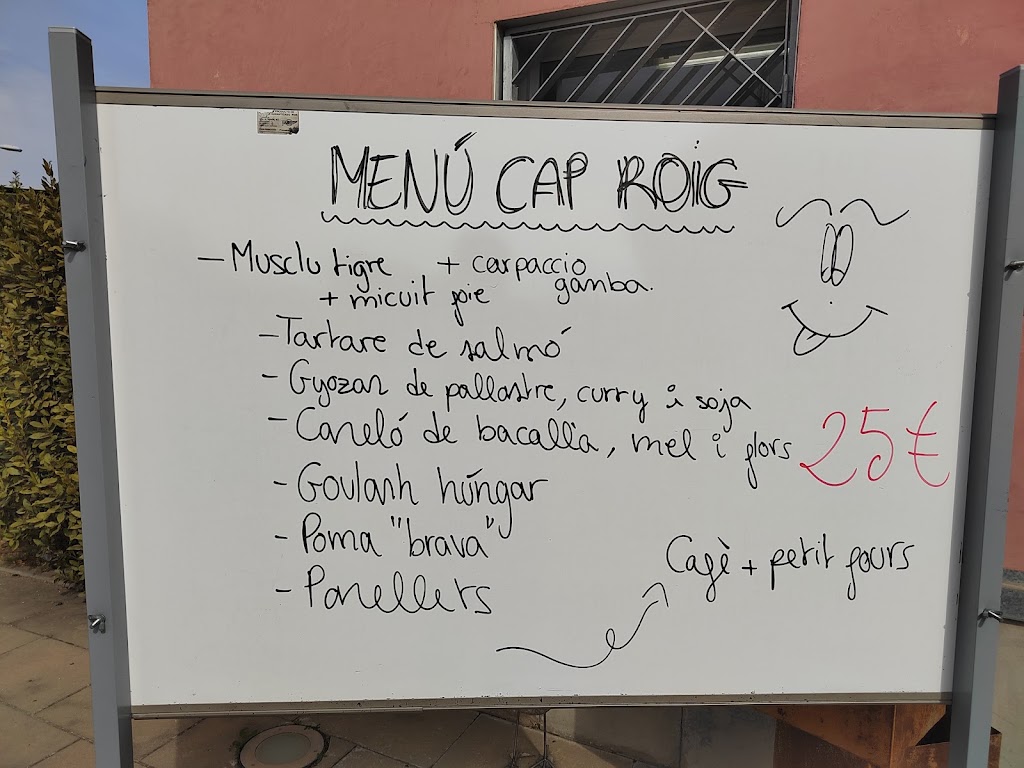 MENÚ CAP ROIG
- Musclu tigre + carpaccio gamba.
+ micuit foie
- Tartare de salmó
- Gyozas de pollastre, curry i soja
- Caneló de bacallà, mel i flors
25€
- Goulash húngar
- Poma "brava"
- Panellets
Cafè + petit fours